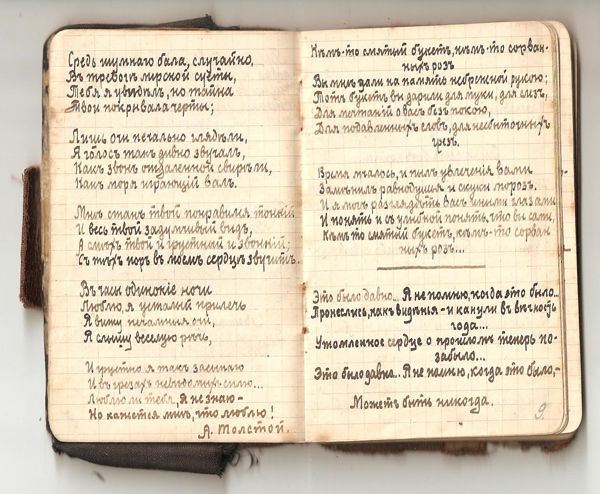 Средь шумнаго бала, случайно,
Въ тревогѣ мірской суеты,
Тебя я увидѣлъ, но тайна
Твои покрывала черты;
Лишь очи печально глядѣли,
А голосъ такъ дивно звучалъ,
Какъ звонъ отдаленной свирѣли,
Какъ моря играющій валъ.
Мнѣ станъ твой понравился тонкій
И весь твой задумчивый видъ,
А смѣхъ твой и грустный и звонкій;
Съ тѣхъ поръ въ моемъ сердцѣ звучитъ..
Въ часы одинокіе ночи
Люблю, я усталый прилечь
Я вижу печальныя очи,
Я слышу веселую рѣчь,
И грустно я такъ засыпаю
И въ грезахъ невѣдомыхъ сплю...
Люблю ли тебя, я не знаю –
Но кажется мнѣ, что люблю!
А. Толстой.
Кѣмъ-то смятый букетъ, кѣмъ-то сорван-
ныхъ розъ
Вы мнѣ дали на память небрежной рукою;
Тотъ букетъ вы дарили для муки, для слезъ,
Для мечтаній о васъ безъ покою,
Для подавленныхъ словъ, для несбыточныхъ
грезъ.
Время мчалось, и пылъ увлеченія вами
Замѣнилъ равнодушья и скуки морозъ.
И я могъ разглядѣть васъ иными глазами
И понять и съ улыбкой понять, что вы сами,
Кѣмъ-то смятый букетъ, кѣмъ-то сорван
ныхъ розъ...
Это было давно... Я не помню, когда это было...
Пронеслись, какъ видѣнья – и канули въ вѣчность
года...
Утомленное сердце о прошломъ теперь по-
забыло...
Это было давно... Я не помню, когда это было,–
Можетъ быть никогда.
9.